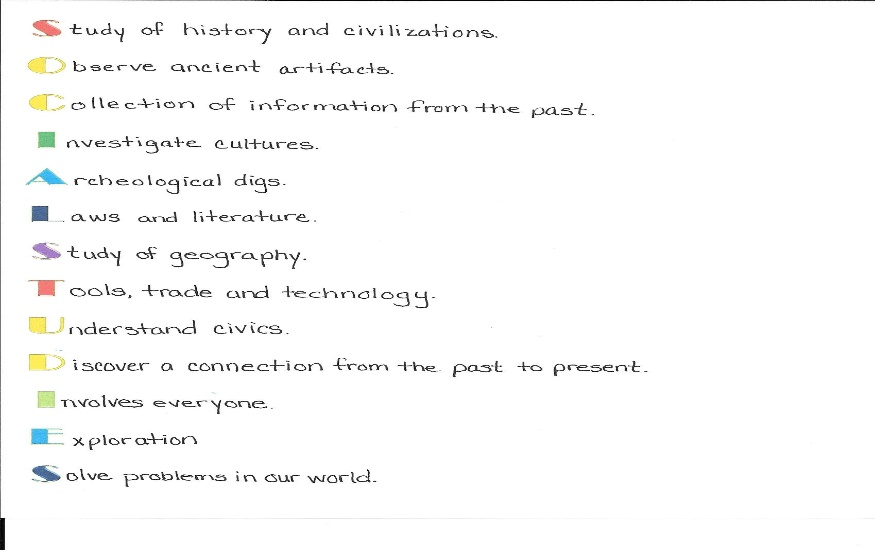 Study of history and civilizations.
Observe ancient artifacts.
Collection of information from the past.
Investigate cultures.
Archeological digs.
Laws and literature.
Study of geography.
Tools, trade and technology.
Understand civics.
Discover a connection from the past to present.
Involves everyone.
Exploration
Solve problems in our world.